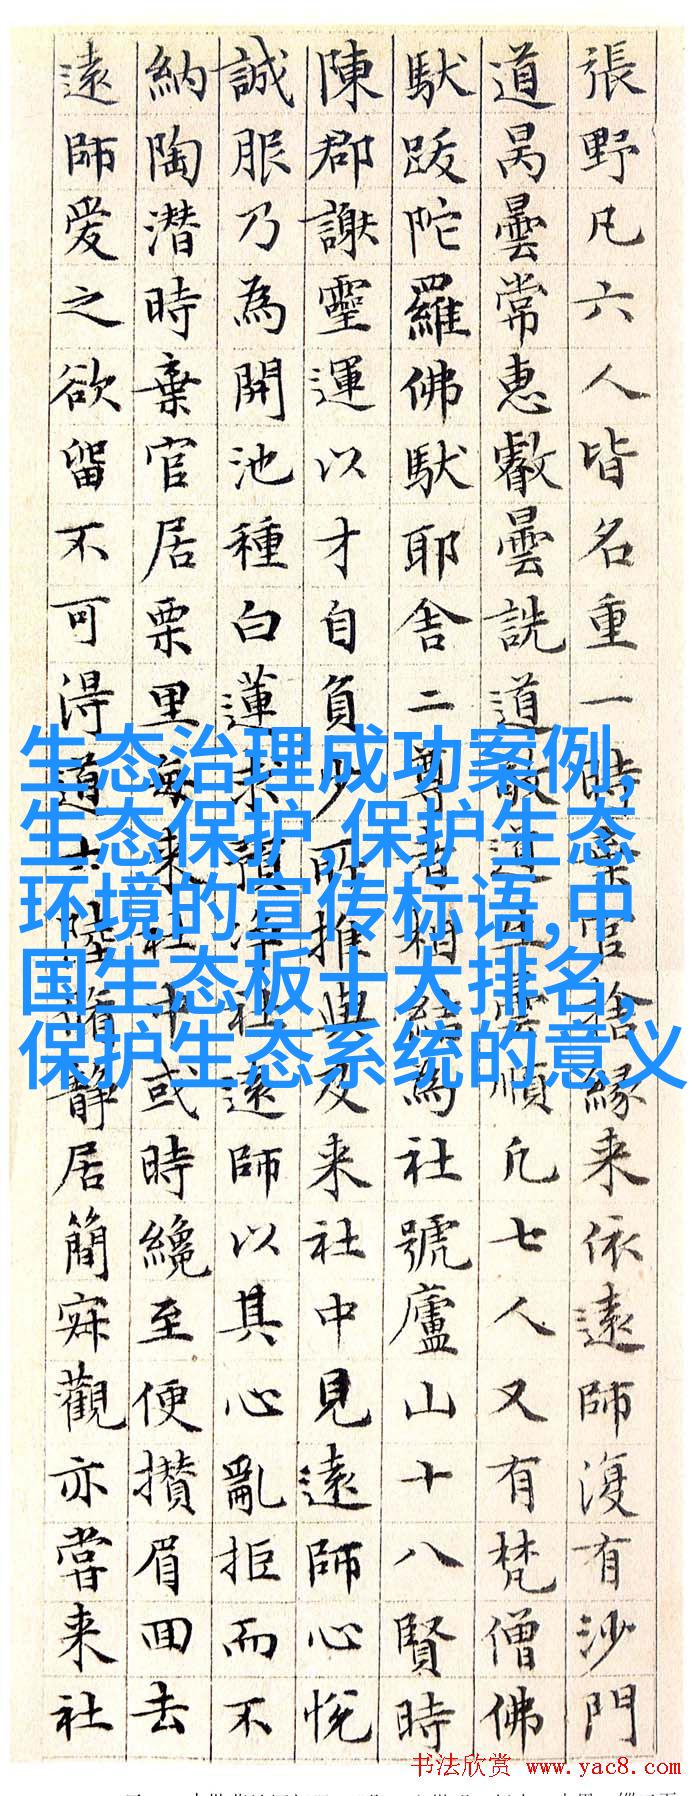 張野凡六人皆名重一時棄官捨緣来依遠師復有沙門
道昺曇常惠叡曇詵道敬道生曇順凡七人又有梵僧佛
馱跋陀羅佛馱耶舍二尊者相结為社號廬山十八賢時
陳郡謝靈運以才自負少所推與及来社中見遠師心悅
誠服乃為開池種白蓮求預净社遠師以其心亂拒而不
納陶潛時棄官居栗里每来社中或時纔至便攢眉回去
遠師爱之欲留不可得道士陸脩靜居簡寂觀亦嘗来社
生态治理成功案例,
生态保护,保护生态
环境的宣传标语,中
国生态板十大排名,
保护生态系统的意义
书法欣赏 www.yac8.com